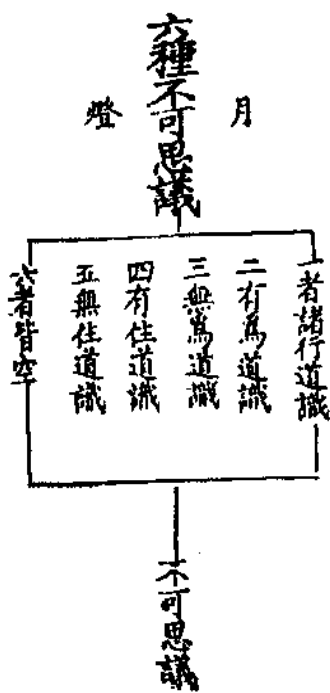 月
六種不可思議
燈
一者諸行道識
二有為道識
三無為道識
四有住道識
五無住道識
六者皆空
不可思議